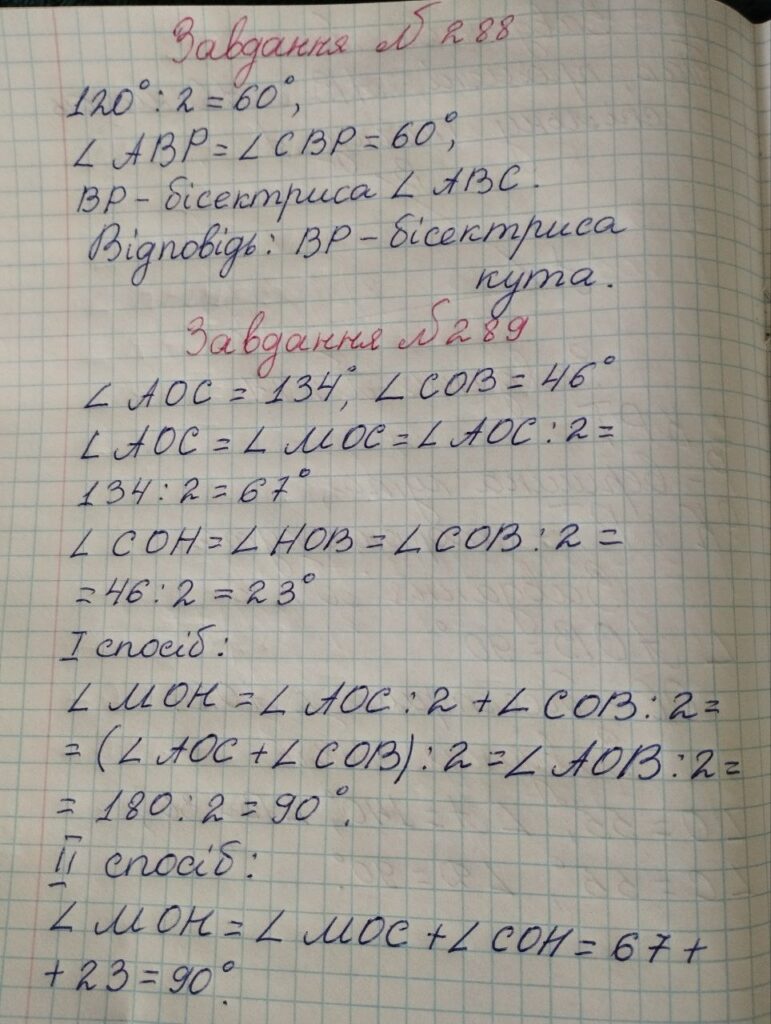 Завдання № 288
120° : 2 = 60°,
∠ ABP = ∠ CBP = 60°,
BP – бісектриса ∠ ABC.
Відповідь: BP – бісектриса
кута.
Завдання № 289
∠ AOC = 134°, ∠ COB = 46°
∠ AOC = ∠ MOC = ∠ AOC : 2 =
134 : 2 = 67°
∠ COH = ∠ HOB = ∠ COB : 2 =
= 46 : 2 = 23°
I спосіб:
∠ MOH = ∠ AOC : 2 + ∠ COB : 2 =
= (∠ AOC + ∠ COB) : 2 = ∠ AOB : 2 =
= 180 : 2 = 90°.
II спосіб:
∠ MOH = ∠ MOC + ∠ COH = 67 +
+ 23 = 90°.